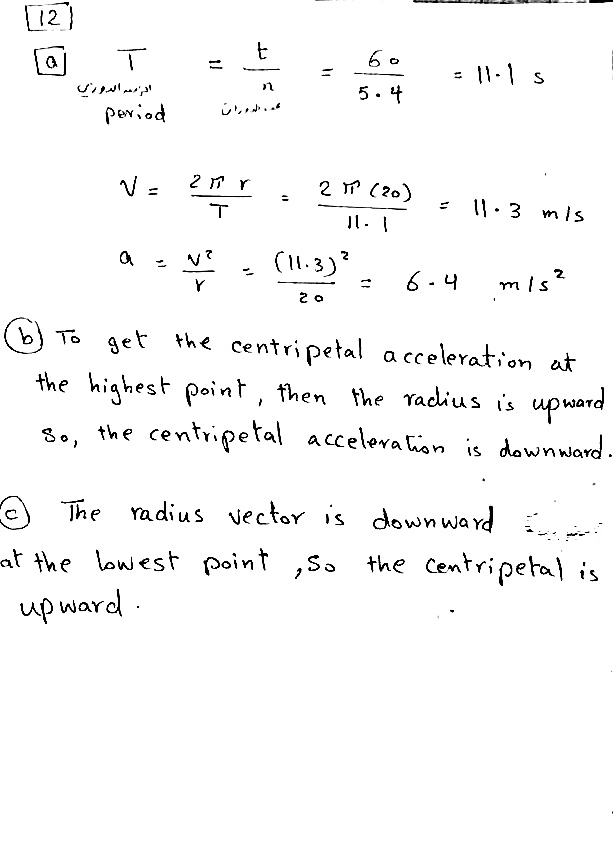 12
a T = t/n = 60/5.4 = 11.1 s
الزمن الدوري
period
V = 2πr/T = 2π(20)/11.1 = 11.3 m/s
a = v²/r = (11.3)²/20 = 6.4 m/s²
b To get the centripetal acceleration at
the highest point, then the radius is upward
So, the centripetal acceleration is downward.
c The radius vector is downward
at the lowest point, So the centripetal is
upward.